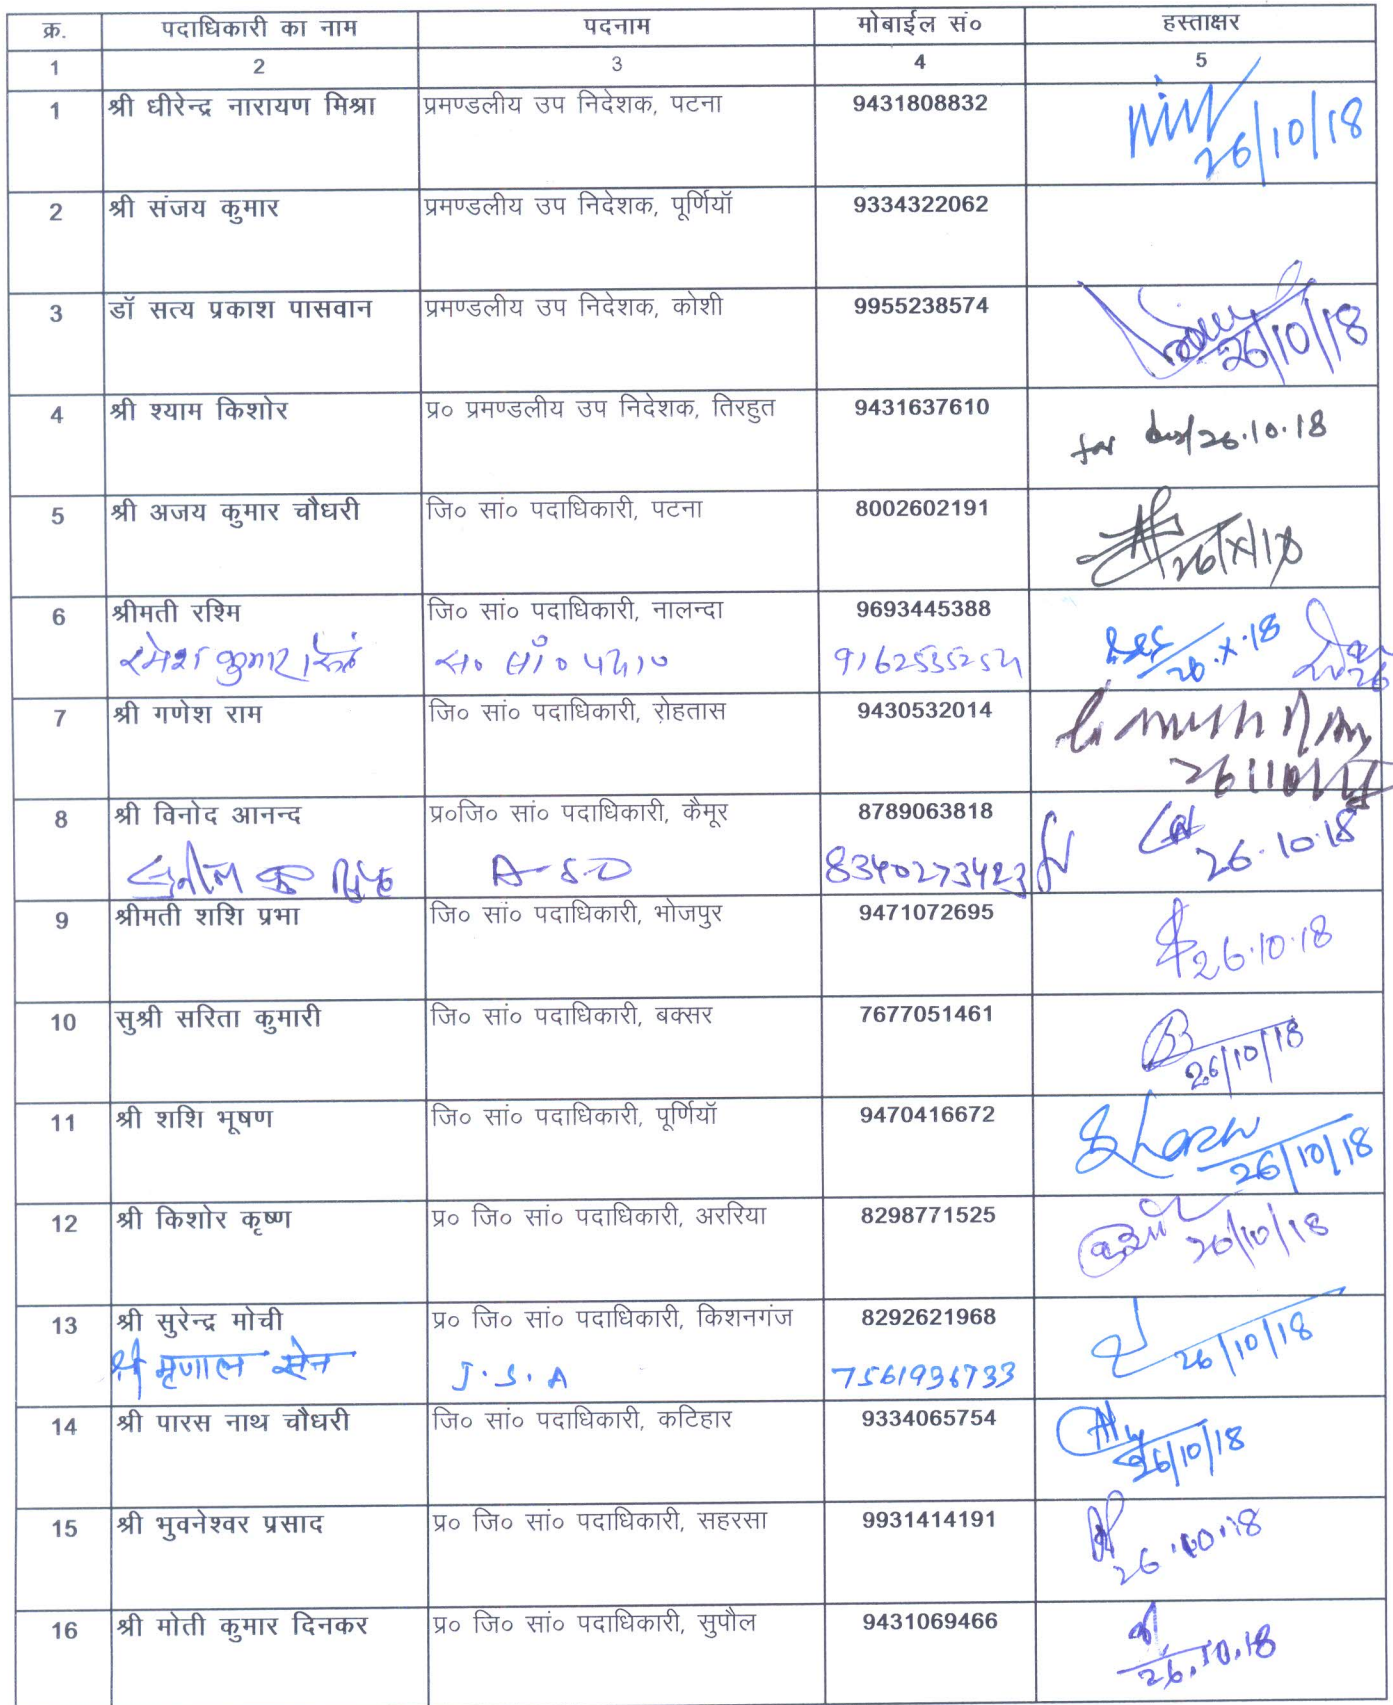 क्र. पदाधिकारी का नाम पदनाम मोबाईल सं० हस्ताक्षर
1 2 3 4 5
1 श्री धीरेन्द्र नारायण मिश्रा प्रमण्डलीय उप निदेशक, पटना 9431808832
26/10/18
2 श्री संजय कुमार प्रमण्डलीय उप निदेशक, पूर्णियॉ 9334322062
3 डॉ सत्य प्रकाश पासवान प्रमण्डलीय उप निदेशक, कोशी 9955238574
26/10/18
4 श्री श्याम किशोर प्र० प्रमण्डलीय उप निदेशक, तिरहुत 9431637610
for 26.10.18
5 श्री अजय कुमार चौधरी जि० सां० पदाधिकारी, पटना 8002602191
26/X/18
6 श्रीमती रश्मि जि० सां० पदाधिकारी, नालन्दा 9693445388
रमेश कुमार स० सां० पदा० 26.X.18
7 श्री गणेश राम जि० सां० पदाधिकारी, रोहतास 9430532014
Ganesh Ram
26/10/18
8 श्री विनोद आनन्द प्र०जि० सां० पदाधिकारी, कैमूर 8789063818
सुनील कु सिंह A-S-O 8340273423 26.10.18
9 श्रीमती शशि प्रभा जि० सां० पदाधिकारी, भोजपुर 9471072695
26.10.18
10 सुश्री सरिता कुमारी जि० सां० पदाधिकारी, बक्सर 7677051461
26/10/18
11 श्री शशि भूषण जि० सां० पदाधिकारी, पूर्णियॉ 9470416672
26/10/18
12 श्री किशोर कृष्ण प्र० जि० सां० पदाधिकारी, अररिया 8298771525
26/10/18
13 श्री सुरेन्द्र मोची प्र० जि० सां० पदाधिकारी, किशनगंज 8292621968
श्री मृणाल सेन J.S.A 7561936733 26/10/18
14 श्री पारस नाथ चौधरी जि० सां० पदाधिकारी, कटिहार 9334065754
26/10/18
15 श्री भुवनेश्वर प्रसाद प्र० जि० सां० पदाधिकारी, सहरसा 9931414191
26.10.18
16 श्री मोती कुमार दिनकर प्र० जि० सां० पदाधिकारी, सुपौल 9431069466
26.10.18